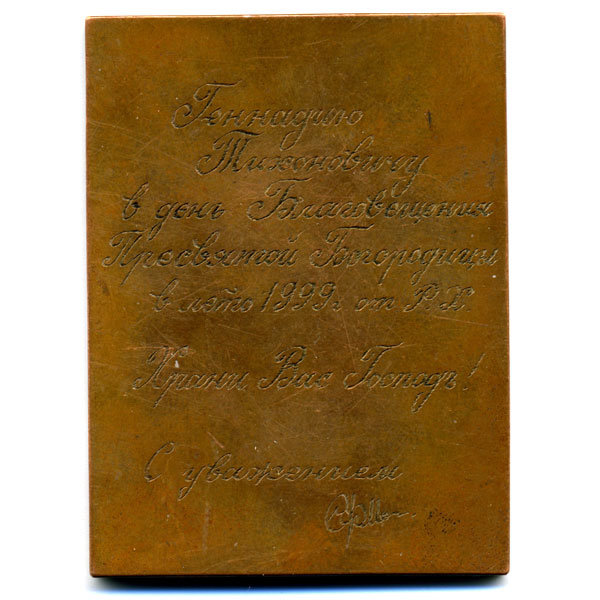 Геннадию
Тихоновичу
в день Благовещения
Пресвятой Богородицы
в лето 1999г. от Р.Х.
Храни Вас Господь!
С уважением